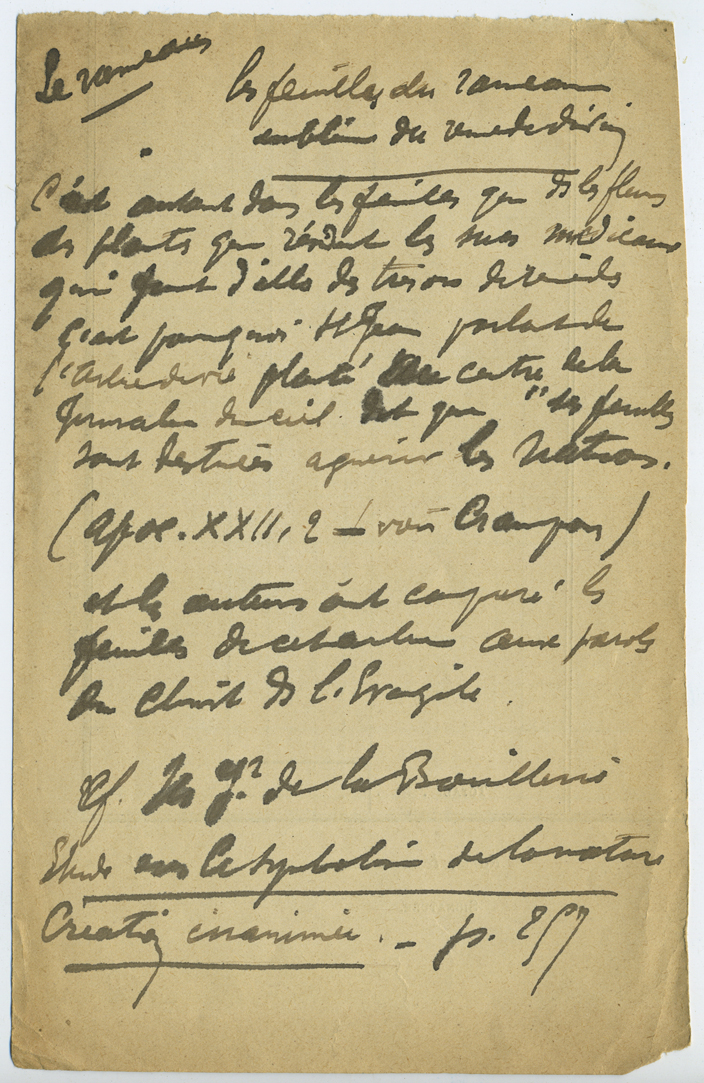 Le rameau
les feuilles du rameau
emblème du remede divin
C'est autant dans les feuilles que ds les fleurs
des plantes que résident les sucs médicaux
qui font d'elles des tresors de remèdes
C'est pourquoi St Jean parlant de
l'arbre de vie planté au centre de la
Jerusalem du ciel dit que "ses feuilles
sont destinées a guérir les Nations.
(Apoc. XXII, 2 – voir Crampon)
et les auteurs ont comparé les
feuilles de cet arbre aux paroles
du Christ ds l'Evangile.
cf. Mgr de la Bouillerie
Etude sur le symbolisme de la nature
Creation inanimée. – p. 257